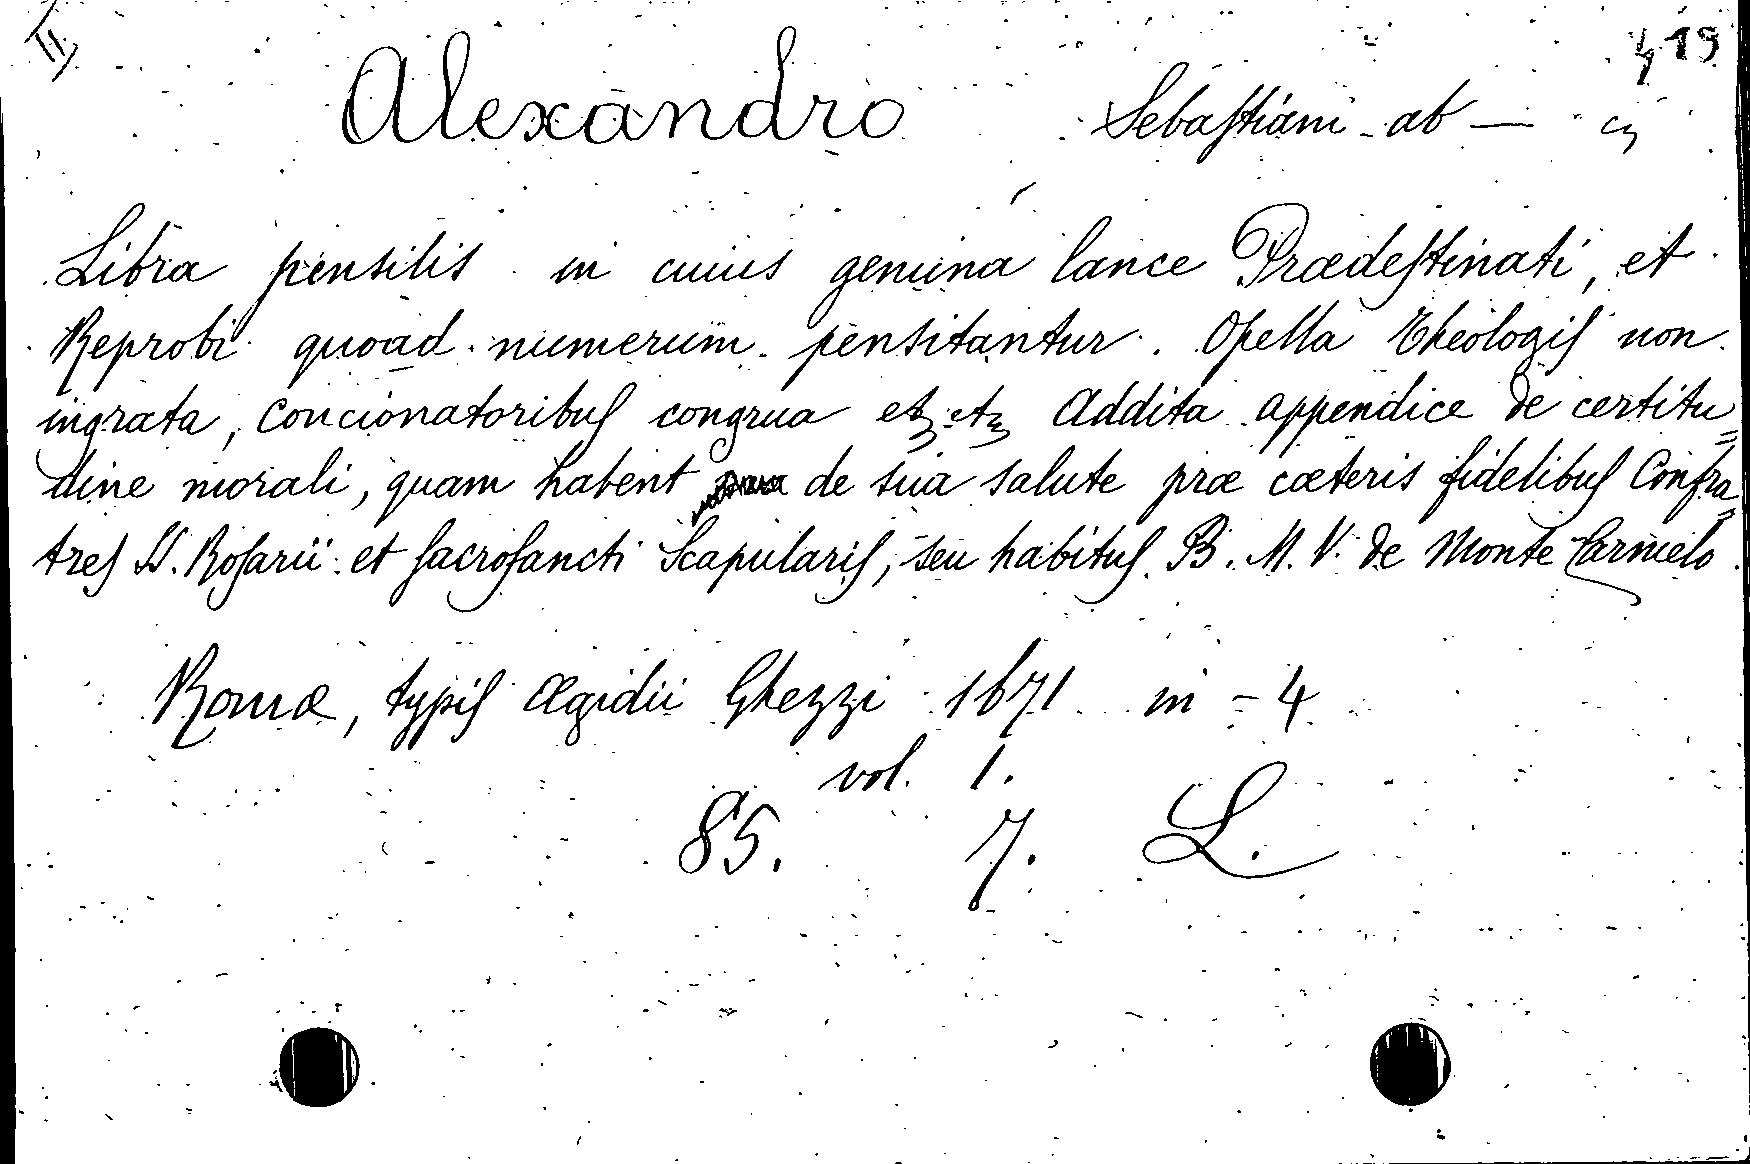 419
Alexandro Sebastiani ab —
Libra pensilis in cuius gemina lance Prædestinati, et
Reprobi quoad numerum pensitantur. Opella Theologis non
ingrata, concionatoribus congrua etz etz Addita appendice de certitu=
dine morali, quam habent de sua salute præ cæteris fidelibus Confra=
tres SS. Rosarii et sacrosancti Scapularis, seu habitus B. M. V. de Monte Carmelo.
Romæ, typis Ægidii Ghezzi 1671 in - 4
vol. 1.
85. 7. L.